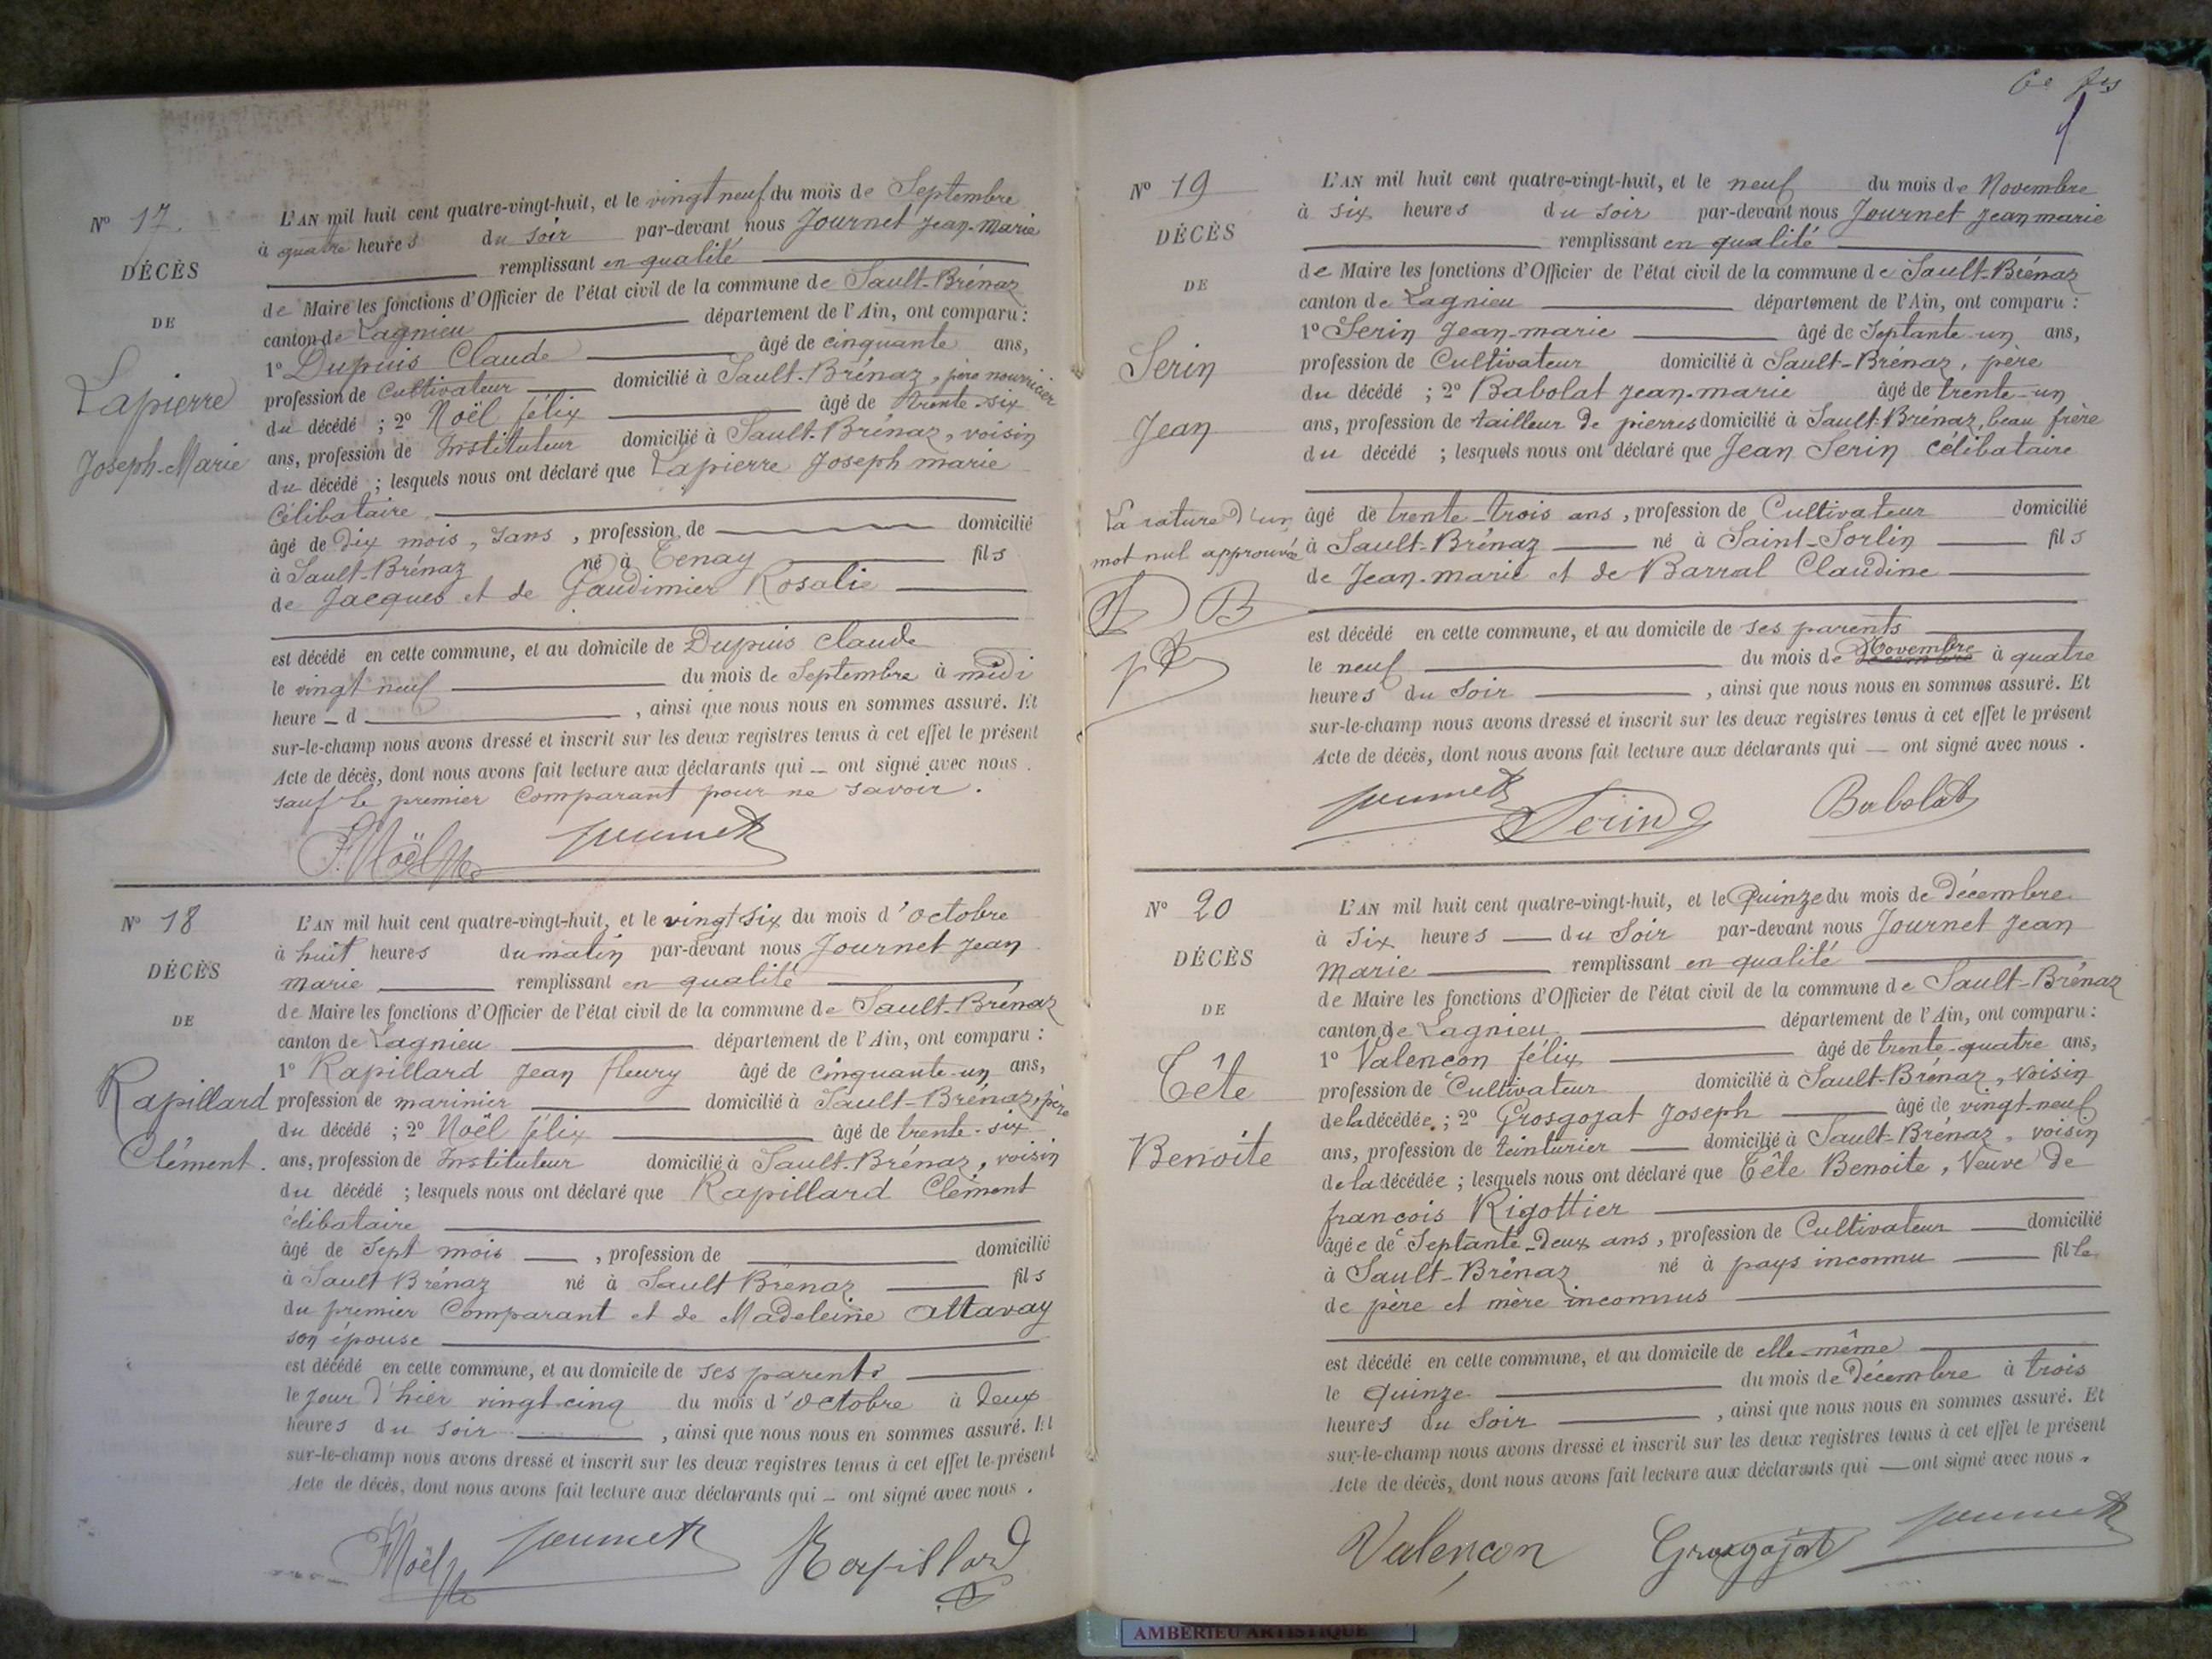 Nº 17.
DÉCÈS
DE
Lapierre
Joseph-Marie
L'AN mil huit cent quatre-vingt-huit, et le vingt neuf du mois de Septembre
à quatre heures du soir par-devant nous Journet Jean-Marie
remplissant en qualité
de Maire les fonctions d'Officier de l'état civil de la commune de Sault-Brénaz
canton de Lagnieu département de l'Ain, ont comparu :
1º Dupuis Claude âgé de cinquante ans,
profession de Cultivateur domicilié à Sault-Brénaz, père nourricier
du décédé ; 2º Noël félix âgé de trente-six
ans, profession de Instituteur domicilié à Sault-Brénaz, voisin
du décédé ; lesquels nous ont déclaré que Lapierre Joseph marie
Célibataire
âgé de dix mois, sans , profession de domicilié
à Sault-Brénaz né à Tenay fils
de Jacques et de Gaudimier Rosalie
est décédé en cette commune, et au domicile de Dupuis Claude
le vingt neuf du mois de Septembre à midi
heure d , ainsi que nous nous en sommes assuré. Et
sur-le-champ nous avons dressé et inscrit sur les deux registres tenus à cet effet le présent
Acte de décès, dont nous avons fait lecture aux déclarants qui — ont signé avec nous.
sauf le premier Comparant pour ne savoir.
F. Noël Journet
Nº 18
DÉCÈS
DE
Rapillard
Clément.
L'AN mil huit cent quatre-vingt-huit, et le vingt six du mois d'octobre
à huit heures du matin par-devant nous Journet Jean
marie remplissant en qualité
de Maire les fonctions d'Officier de l'état civil de la commune de Sault-Brénaz
canton de Lagnieu département de l'Ain, ont comparu :
1º Rapillard Jean fleury âgé de cinquante-un ans,
profession de marinier domicilié à Sault-Brénaz, père
du décédé ; 2º Noël félix âgé de trente-six
ans, profession de Instituteur domicilié à Sault-Brénaz, voisin
du décédé ; lesquels nous ont déclaré que Rapillard Clément
célibataire
âgé de Sept mois — , profession de domicilié
à Sault Brénaz né à Sault Brénaz fils
du premier Comparant et de Madeleine Attavay
son épouse
est décédé en cette commune, et au domicile de ses parents
le jour d'hier vingt-cinq du mois d'octobre à deux
heures du soir , ainsi que nous nous en sommes assuré. Et
sur-le-champ nous avons dressé et inscrit sur les deux registres tenus à cet effet le présent
Acte de décès, dont nous avons fait lecture aux déclarants qui — ont signé avec nous.
F. Noël Journet Rapillard
Nº 19
DÉCÈS
DE
Serin
Jean
La rature d'un
mot nul approuvée
L'AN mil huit cent quatre-vingt-huit, et le neuf du mois de Novembre
à six heures du soir par-devant nous Journet Jean marie
remplissant en qualité
de Maire les fonctions d'Officier de l'état civil de la commune de Sault-Brénaz
canton de Lagnieu département de l'Ain, ont comparu :
1º Serin Jean-marie âgé de Septante-un ans,
profession de Cultivateur domicilié à Sault-Brénaz, père
du décédé ; 2º Babolat Jean-marie âgé de trente-un
ans, profession de tailleur de pierres domicilié à Sault-Brénaz, beau frère
du décédé ; lesquels nous ont déclaré que Jean Serin célibataire
âgé de trente-trois ans, profession de Cultivateur domicilié
à Sault-Brénaz né à Saint-Sorlin fils
de Jean-marie et de Barral Claudine
est décédé en cette commune, et au domicile de ses parents
le neuf du mois de Novembre à quatre
heures du soir , ainsi que nous nous en sommes assuré. Et
sur-le-champ nous avons dressé et inscrit sur les deux registres tenus à cet effet le présent
Acte de décès, dont nous avons fait lecture aux déclarants qui — ont signé avec nous.
Journet Serin Babolat
Nº 20
DÉCÈS
DE
Tête
Benoite
L'AN mil huit cent quatre-vingt-huit, et le Quinze du mois de décembre
à six heures — du soir par-devant nous Journet Jean
Marie remplissant en qualité
de Maire les fonctions d'Officier de l'état civil de la commune de Sault-Brénaz
canton de Lagnieu département de l'Ain, ont comparu :
1º Valençon félix âgé de trente-quatre ans,
profession de Cultivateur domicilié à Sault-Brénaz, voisin
de la décédée ; 2º Grosgojat Joseph âgé de vingt-neuf
ans, profession de teinturier domicilié à Sault-Brénaz, voisin
de la décédée ; lesquels nous ont déclaré que Tête Benoite, Veuve de
françois Rigottier
âgée de Septante-deux ans, profession de Cultivateur domicilié
à Sault-Brénaz né à pays inconnu fille
de père et mère inconnus
est décédé en cette commune, et au domicile de elle-même
le quinze du mois de décembre à trois
heures du soir , ainsi que nous nous en sommes assuré. Et
sur-le-champ nous avons dressé et inscrit sur les deux registres tenus à cet effet le présent
Acte de décès, dont nous avons fait lecture aux déclarants qui — ont signé avec nous.
Valençon Grosgojat Journet
AMBERIEU ARTISTIQUE